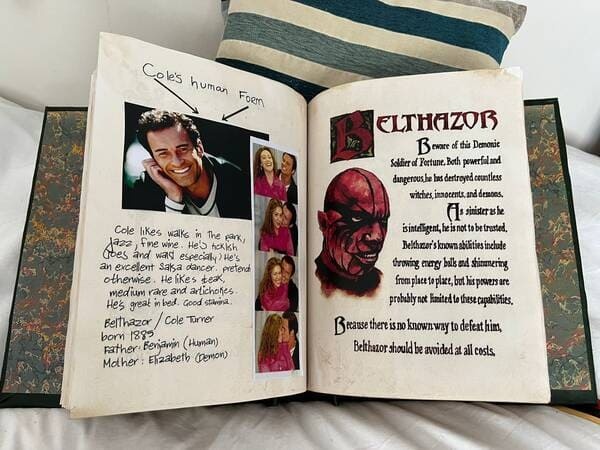 Cole's human Form
Cole likes walks in the park,
Jazz, fine wine. He's ticklish
(toes and waist especially) He's
an excellent salsa dancer. pretend
otherwise. He likes steak,
medium rare and artichokes.
He's great in bed. Good stamina.
Belthazor / Cole Turner
born 1885
Father: Benjamin (Human)
Mother: Elizabeth (Demon)
BELTHAZOR
Beware of this Demonic
Soldier of Fortune. Both powerful and
dangerous, he has destroyed countless
witches, innocents, and demons.
As sinister as he
is intelligent, he is not to be trusted.
Belthazor's known abilities include
throwing energy balls and shimmering
from place to place, but his powers are
probably not limited to these capabilities.
Because there is no known way to defeat him,
Belthazor should be avoided at all costs.